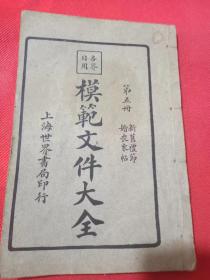 第五冊
新舊禮節
婚喪柬帖
各界日用
模範文件大全
上海世界書局印行